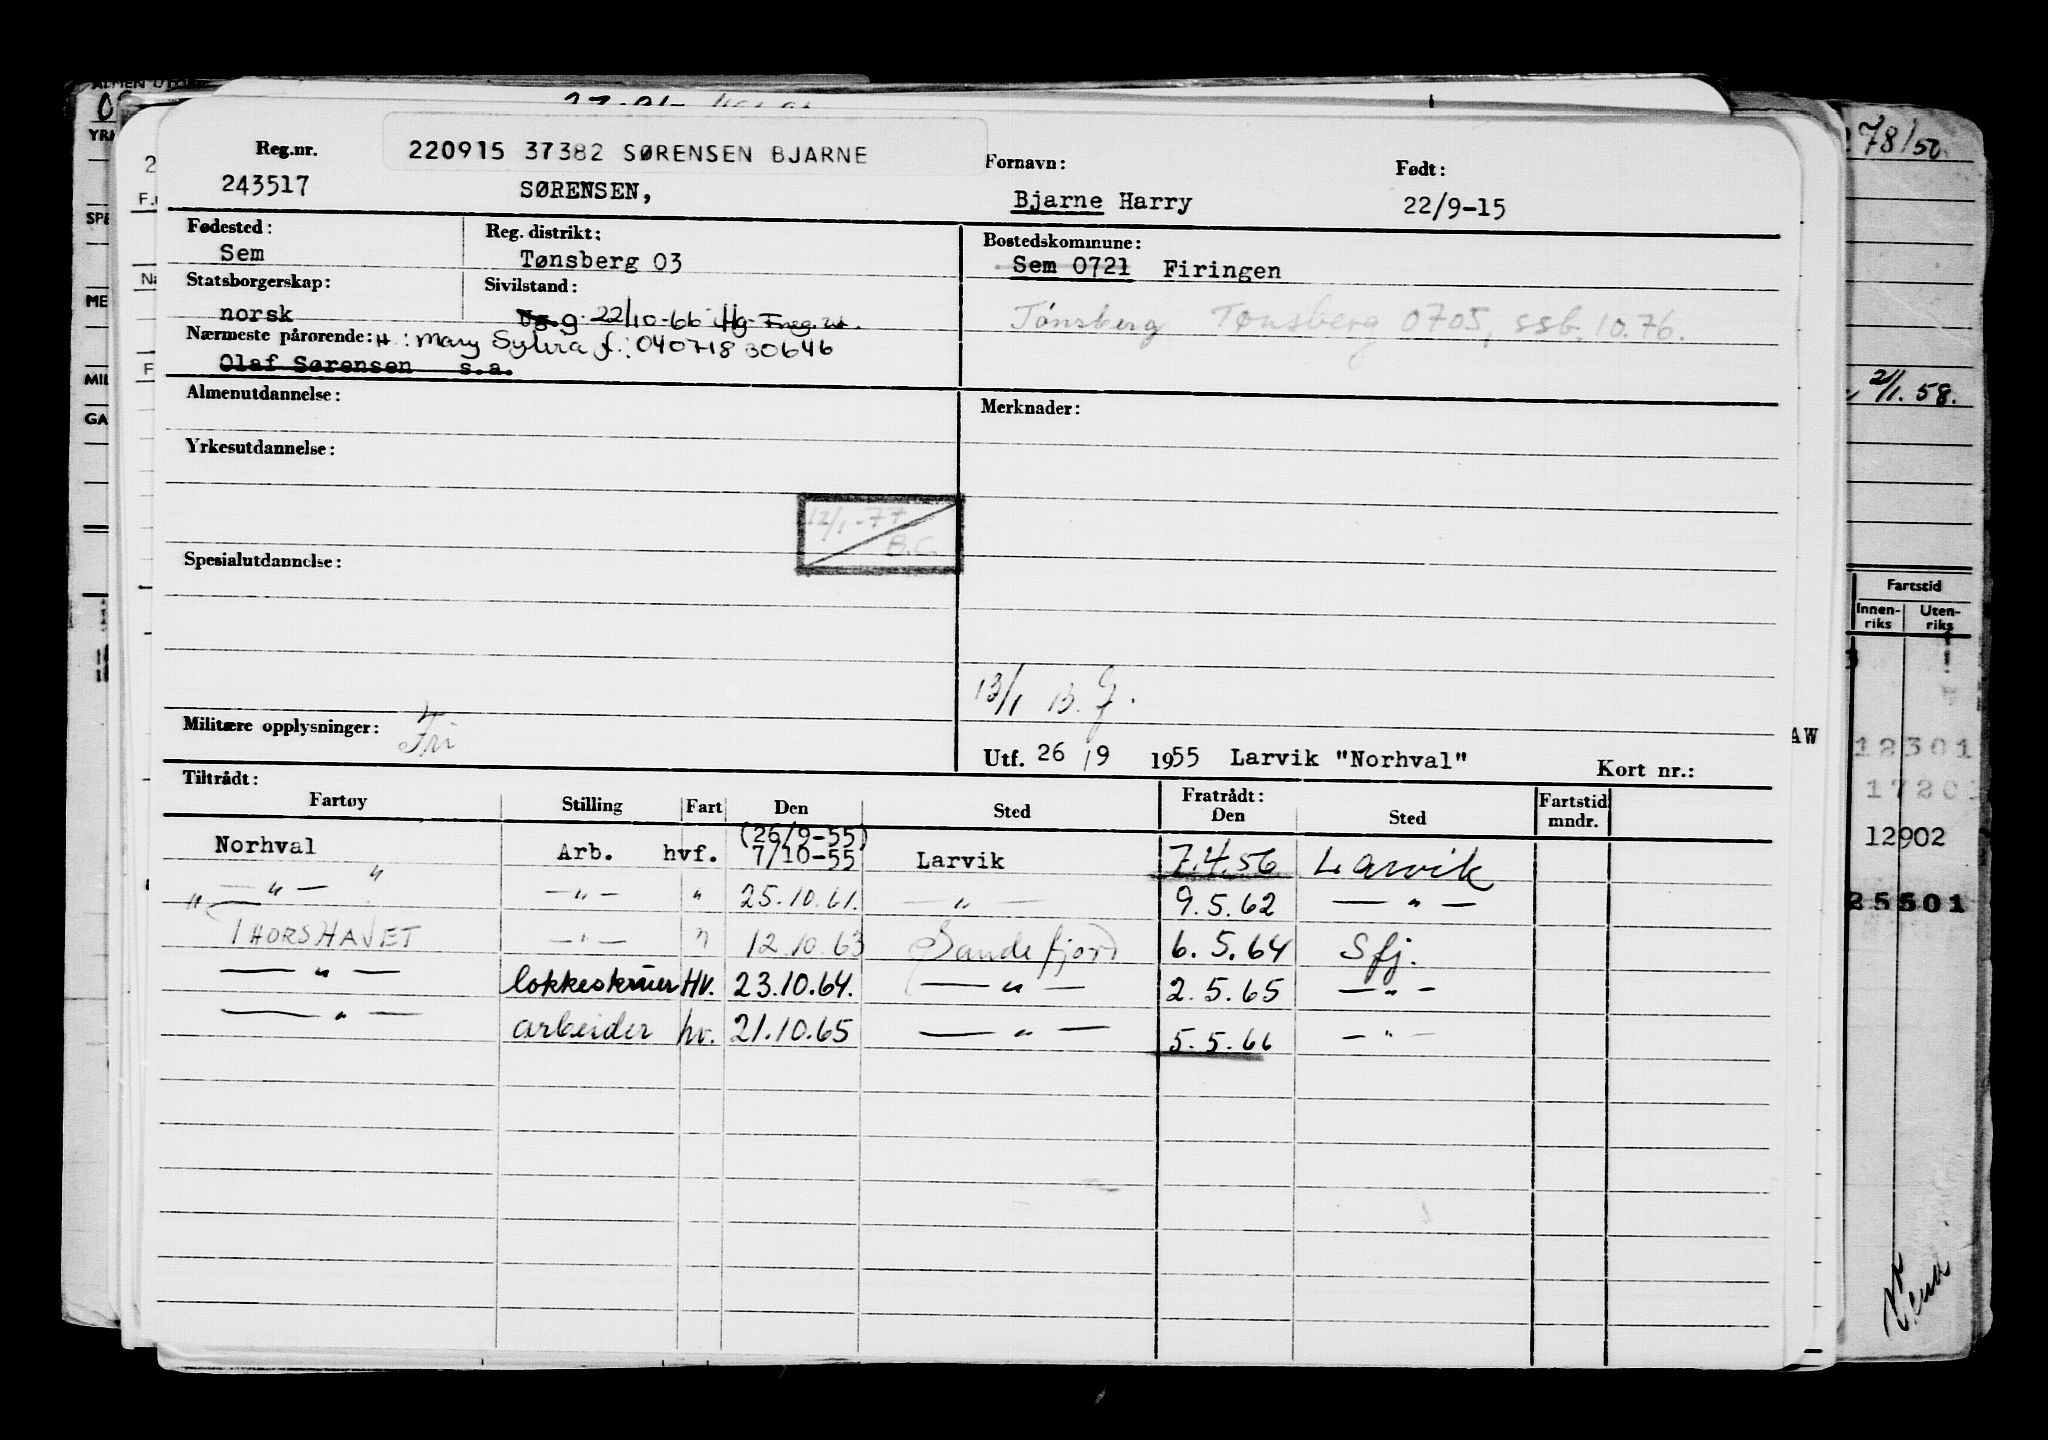 220915 37382 SØRENSEN BJARNE
Reg.nr. Fornavn: Født:
243517 SØRENSEN, Bjarne Harry 22/9-15
Fødested: Reg. distrikt: Bostedskommune:
Sem Tønsberg 03 Sem 0721 Firingen
Statsborgerskap: Sivilstand:
norsk Ug. g. 22/10-66 Tønsberg Tønsberg 0705, ssb. 10.76.
Nærmeste pårørende: H.: Mary Sylvia f.: 040718 30646
Olaf Sørensen s.a.
Almenutdannelse: Merknader:
Yrkesutdannelse:
12/1-77
B.C.
Spesialutdannelse:
13/1 B.G.
Militære opplysninger: Fri
Utf. 26/9 1955 Larvik "Norhval" Kort nr.:
Tiltrådt: Fratrådt:
Fartøy Stilling Fart Den Sted Den Sted Fartstid mndr.
(26/9-55)
Norhval Arb. hvf. 7/10-55 Larvik 7.4.56 Larvik
— " — " — " — " 25.10.61. — " — 9.5.62 — " —
THORSHAVET — " — " 12.10.63 Sandefjord 6.5.64 Sfj.
— " — lokkeskruer Hv. 23.10.64. — " — 2.5.65 — " —
— " — arbeider hv. 21.10.65 — " — 5.5.66 — " —
78/50.
2/1.58.
Fartstid
Innen-riks Uten-riks
AW
12301
1720
12902
25501
YRK
SPE
ME
MIL
GA